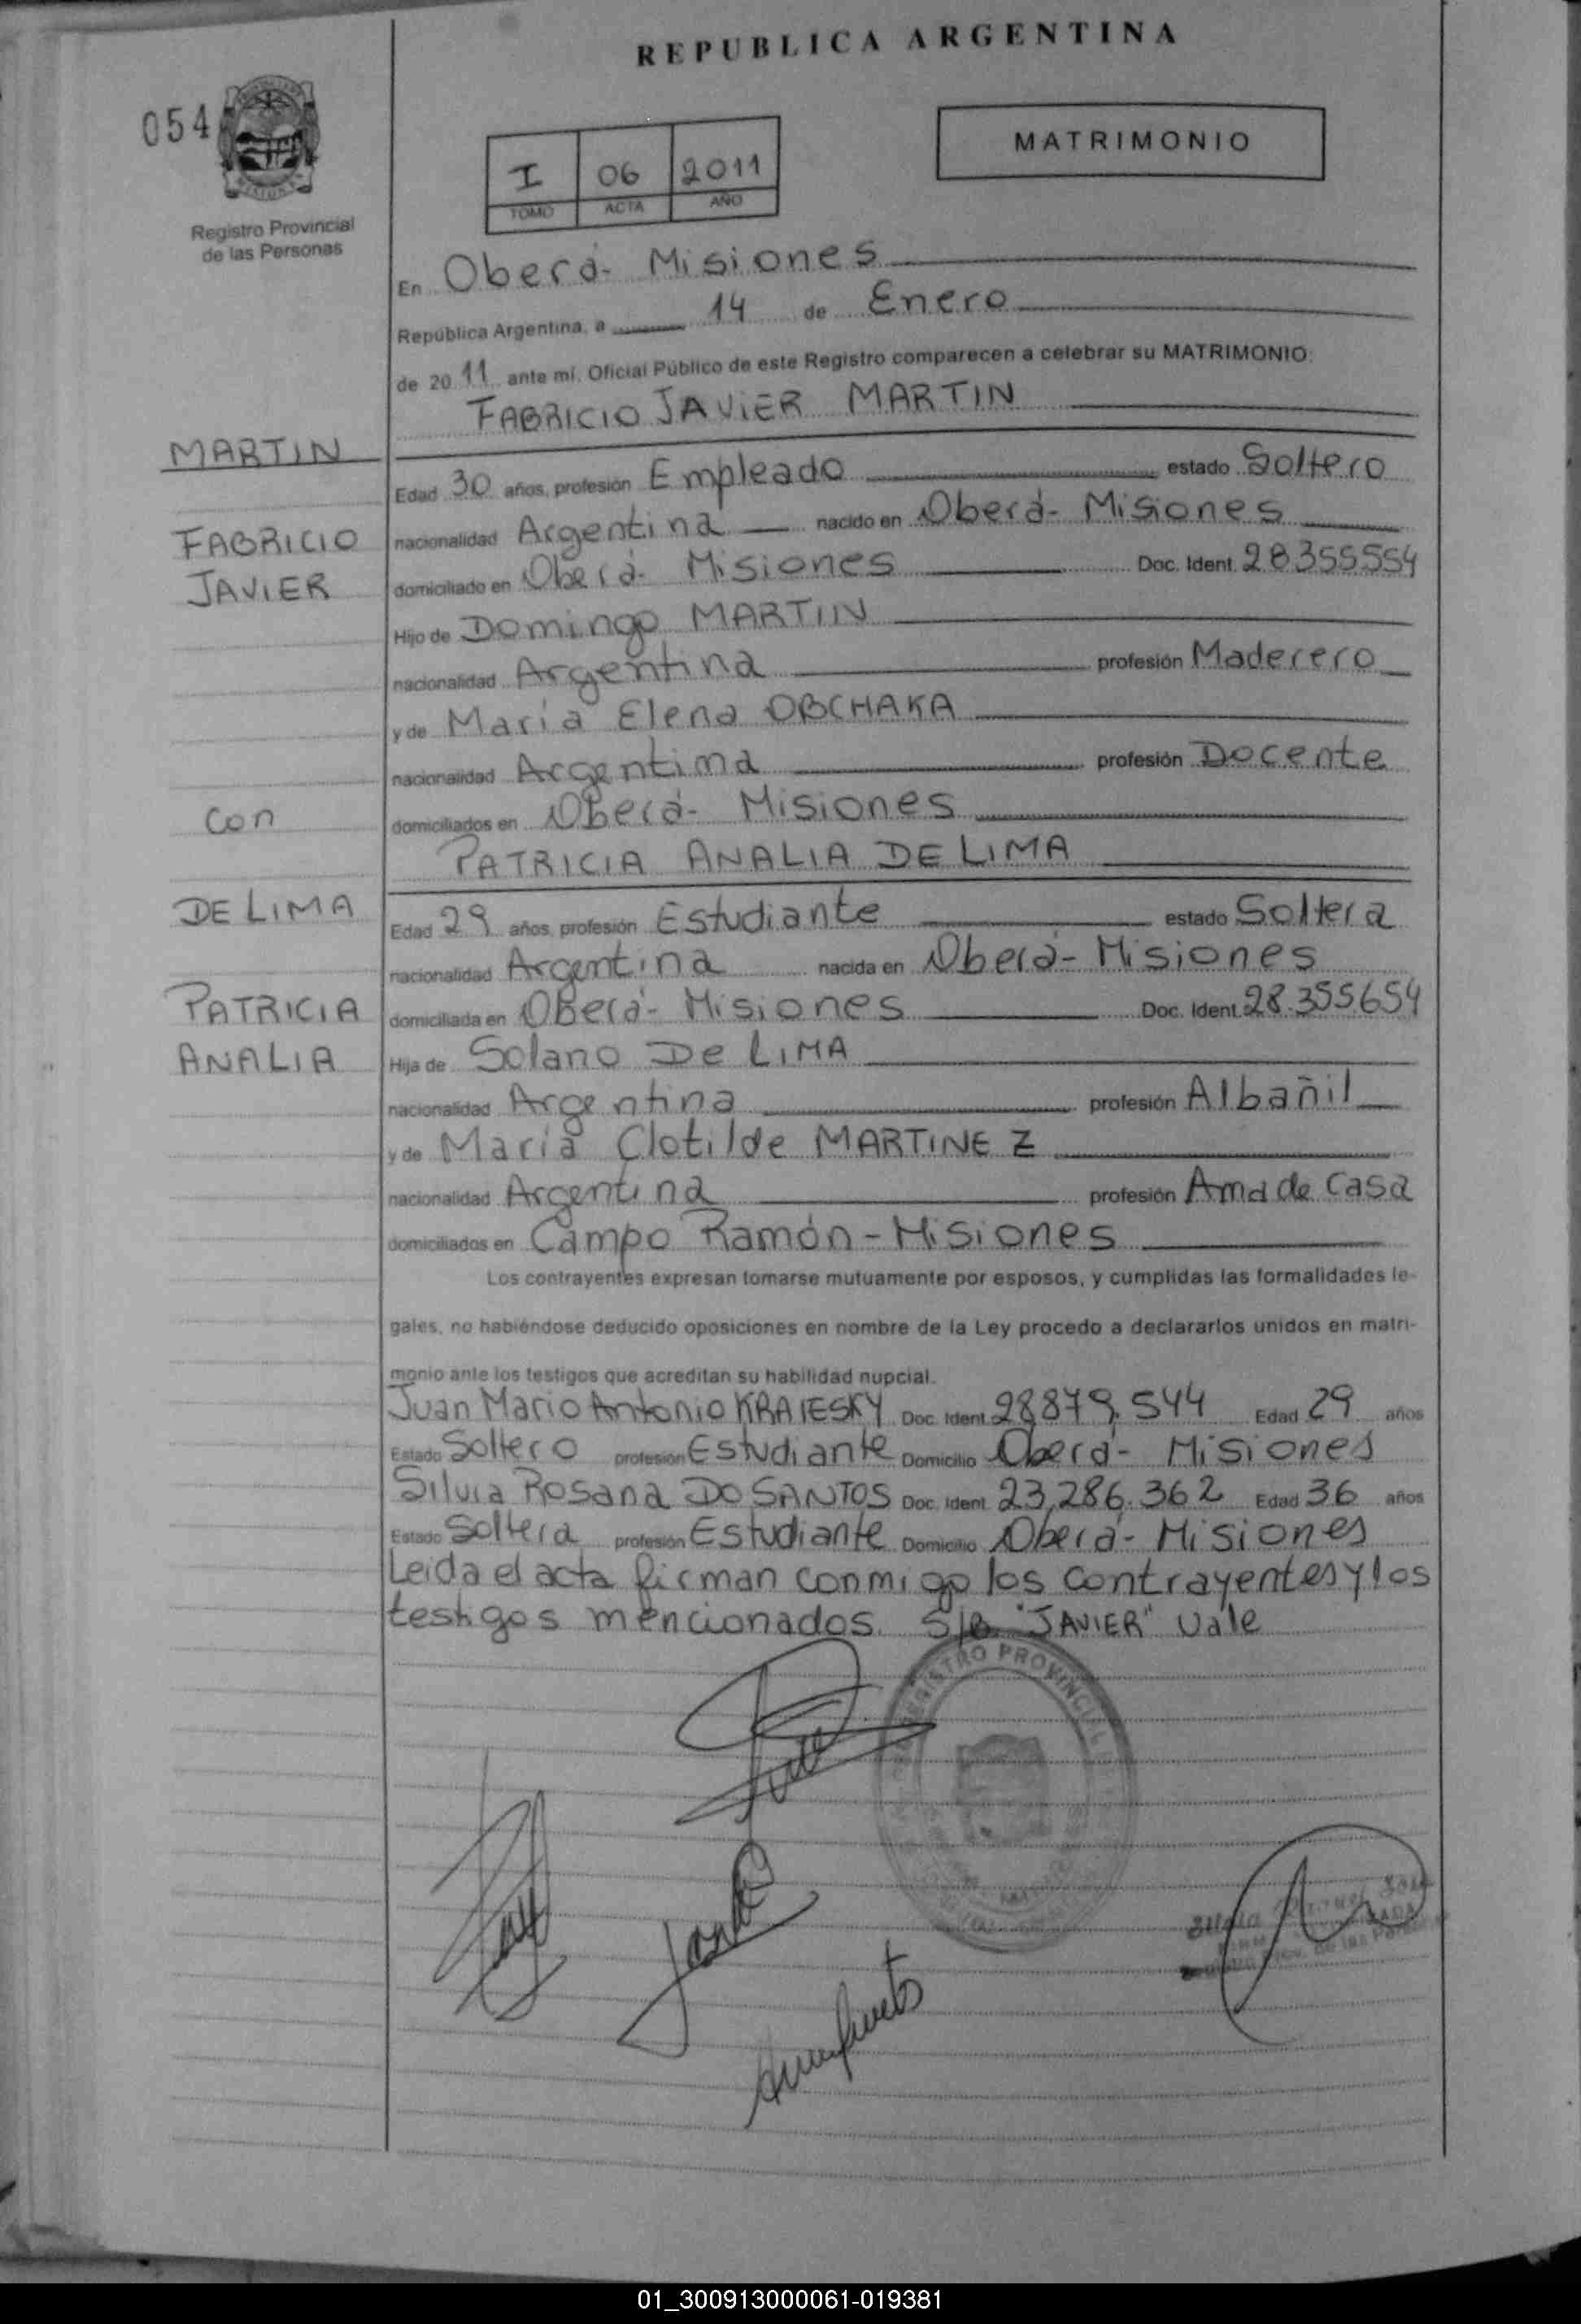 REPUBLICA ARGENTINA
054
MISIONES
Registro Provincial
de las Personas
I 06 2011
TOMO ACTA AÑO
MATRIMONIO
En Oberá- Misiones
República Argentina, a 14 de Enero
de 2011 ante mí, Oficial Público de este Registro comparecen a celebrar su MATRIMONIO:
FABRICIO JAVIER MARTIN
MARTIN
Edad 30 años, profesión Empleado estado Soltero
FABRICIO
nacionalidad Argentina nacido en Oberá- Misiones
JAVIER
domiciliado en Oberá- Misiones Doc. Ident. 28355554
Hijo de Domingo MARTIIN
nacionalidad Argentina profesión Maderero
y de María Elena OBCHAKA
nacionalidad Argentina profesión Docente
con
domiciliados en Oberá- Misiones
PATRICIA ANALIA DE LIMA
DE LIMA
Edad 29 años, profesión Estudiante estado Soltera
nacionalidad Argentina nacida en Oberá- Misiones
PATRICIA
domiciliada en Oberá- Misiones Doc. Ident. 28.355.654
ANALIA
Hija de Solano De LIMA
nacionalidad Argentina profesión Albañil
y de María Clotilde MARTINEZ
nacionalidad Argentina profesión Ama de Casa
domiciliados en Campo Ramón - Misiones
Los contrayentes expresan tomarse mutuamente por esposos, y cumplidas las formalidades le-
gales, no habiéndose deducido oposiciones en nombre de la Ley procedo a declararlos unidos en matri-
monio ante los testigos que acreditan su habilidad nupcial.
Juan Mario Antonio KRAIESKY Doc. Ident. 28,879.544 Edad 29 años
Estado Soltero profesión Estudiante Domicilio Oberá- Misiones
Silvia Rosana DO SANTOS Doc. Ident. 23,286.362 Edad 36 años
Estado Soltera profesión Estudiante Domicilio Oberá- Misiones
Leida el acta firman conmigo los contrayentes y los
testigos mencionados. S/B "JAVIER" Vale
REGISTRO PROVINCIAL
01_300913000061-019381